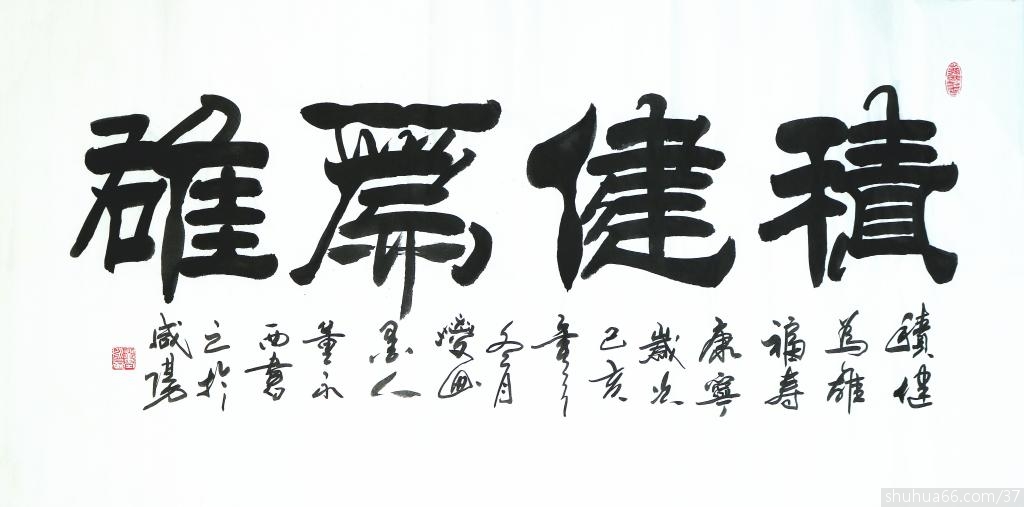 積健爲雄
積健
為雄
福寿
康寧
歲次
己亥
冬月
墨人
董永
西書
之於
咸陽
shuhua66.com/37